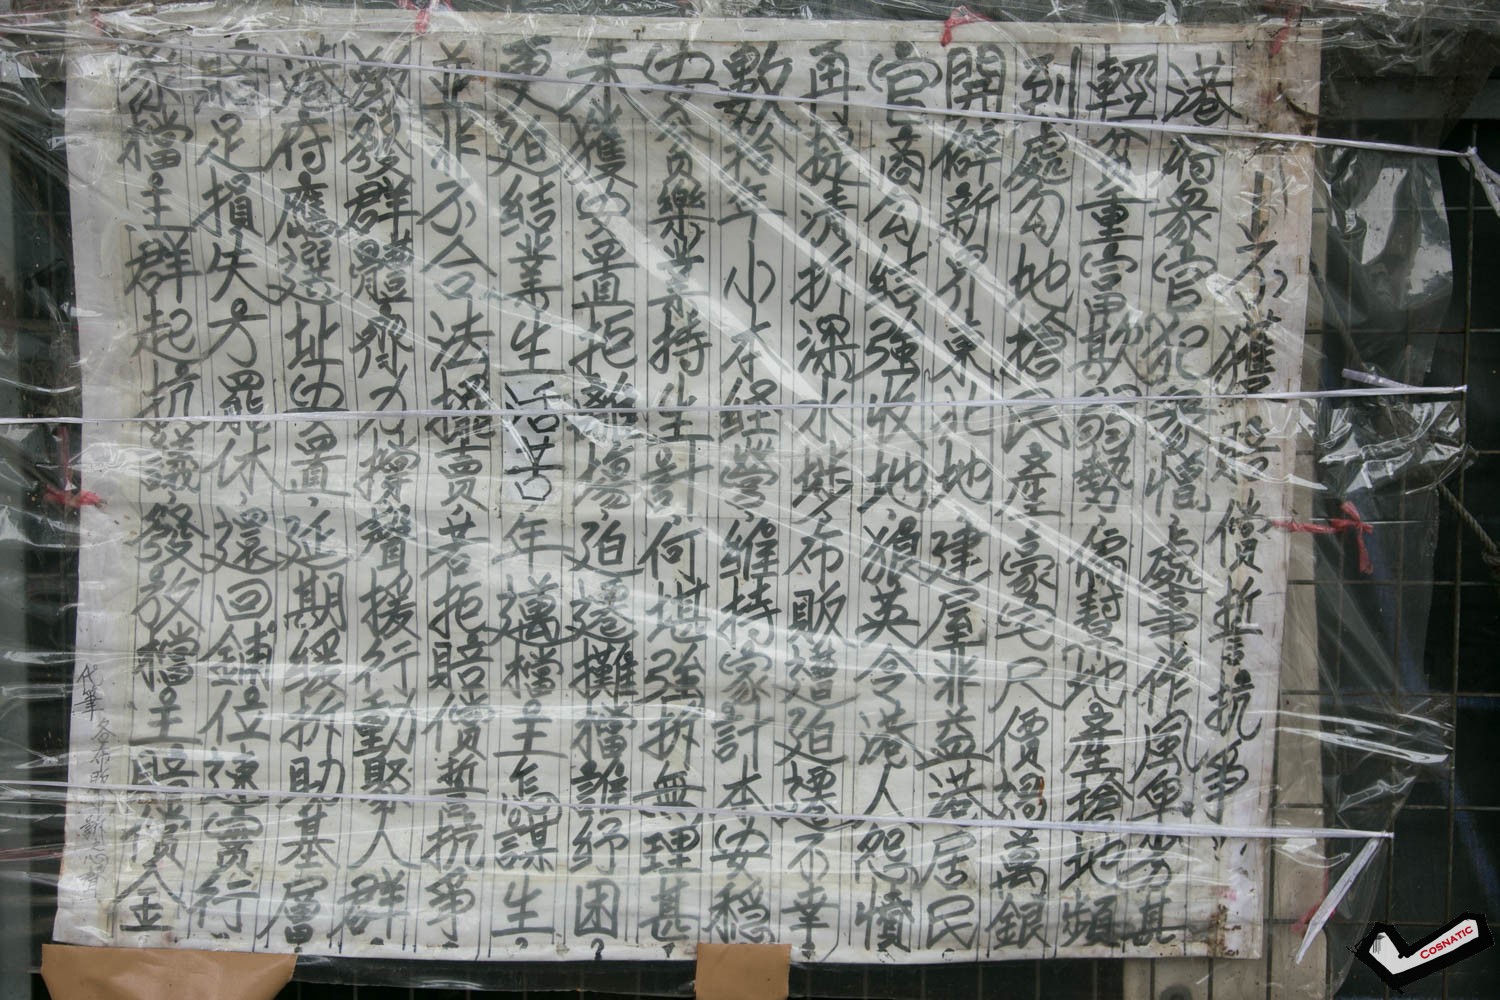 不獲賠償誓抗爭
港府眾官犯眾憎，處事作風卑劣甚
輕重富欺弱勢，幫地產搶地頻
到處勾地搶民產，豪宅尺價過萬銀
開辟新界東北地，建屋非益港居民
官商勾結強收地，狼英令港人怨憤
再提清拆深水埗布販遭迫遷不幸
數拾年小本經營，維持家計本安穩
安分樂業持生計，何堪強拆無理甚
未獲安置拒離場，迫遷攤檔誰紓困？
更迫結業生活苦，年邁檔主怎謀生？
並非不合法擺賣，若拒賠償誓抗爭
激發群體齊力撐，聲援行動聚人群
港府應選址安置，延期緩拆助基層
賠足損失方罷休，還回舖位速實行
眾檔主群起抗議，發放檔主賠償金
代筆
COSNATIC